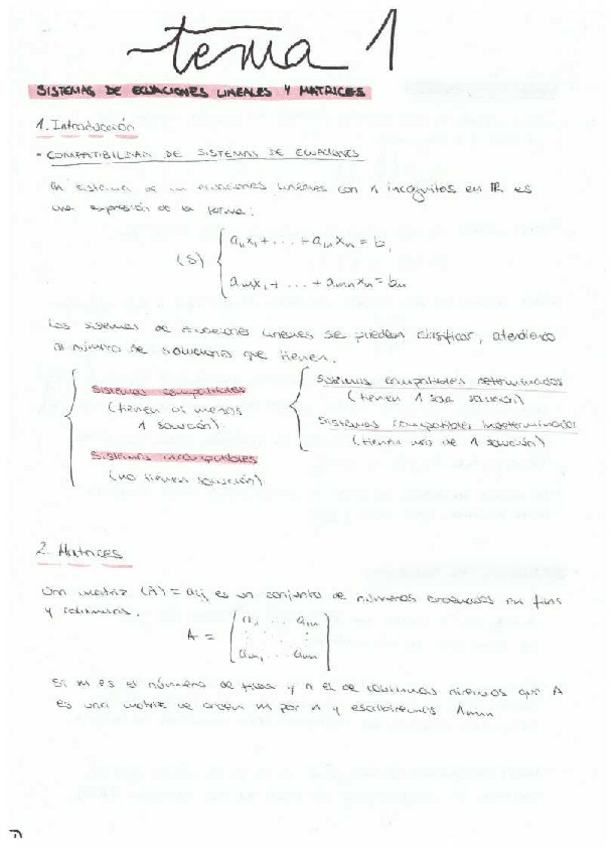 tema 1
SISTEMAS DE ECUACIONES LINEALES Y MATRICES
1. Introducción
- COMPATIBILIDAD DE SISTEMAS DE ECUACIONES
Un sistema de m ecuaciones lineales con n incógnitas en ℝ es
una expresión de la forma:
(S) { a₁₁x₁ + ... + a₁ₙxₙ = b₁
aₘ₁x₁ + ... + aₘₙxₙ = bₘ
Los sistemas de ecuaciones lineales se pueden clasificar, atendiendo
al número de soluciones que tienen.
Sistemas compatibles
(tienen al menos
1 solución)
Sistemas compatibles determinados
(tienen 1 sola solución)
Sistemas compatibles indeterminados
(tienen más de 1 solución)
Sistemas incompatibles
(no tienen solución)
2. Matrices
Una matriz (A) = aij es un conjunto de números ordenados en filas
y columnas.
A = ( a₁₁ ... a₁ₙ
aₘ₁ ... aₘₙ )
Si m es el número de filas y n el de columnas diremos que A
es una matriz de orden m por n y escribiremos Amxn